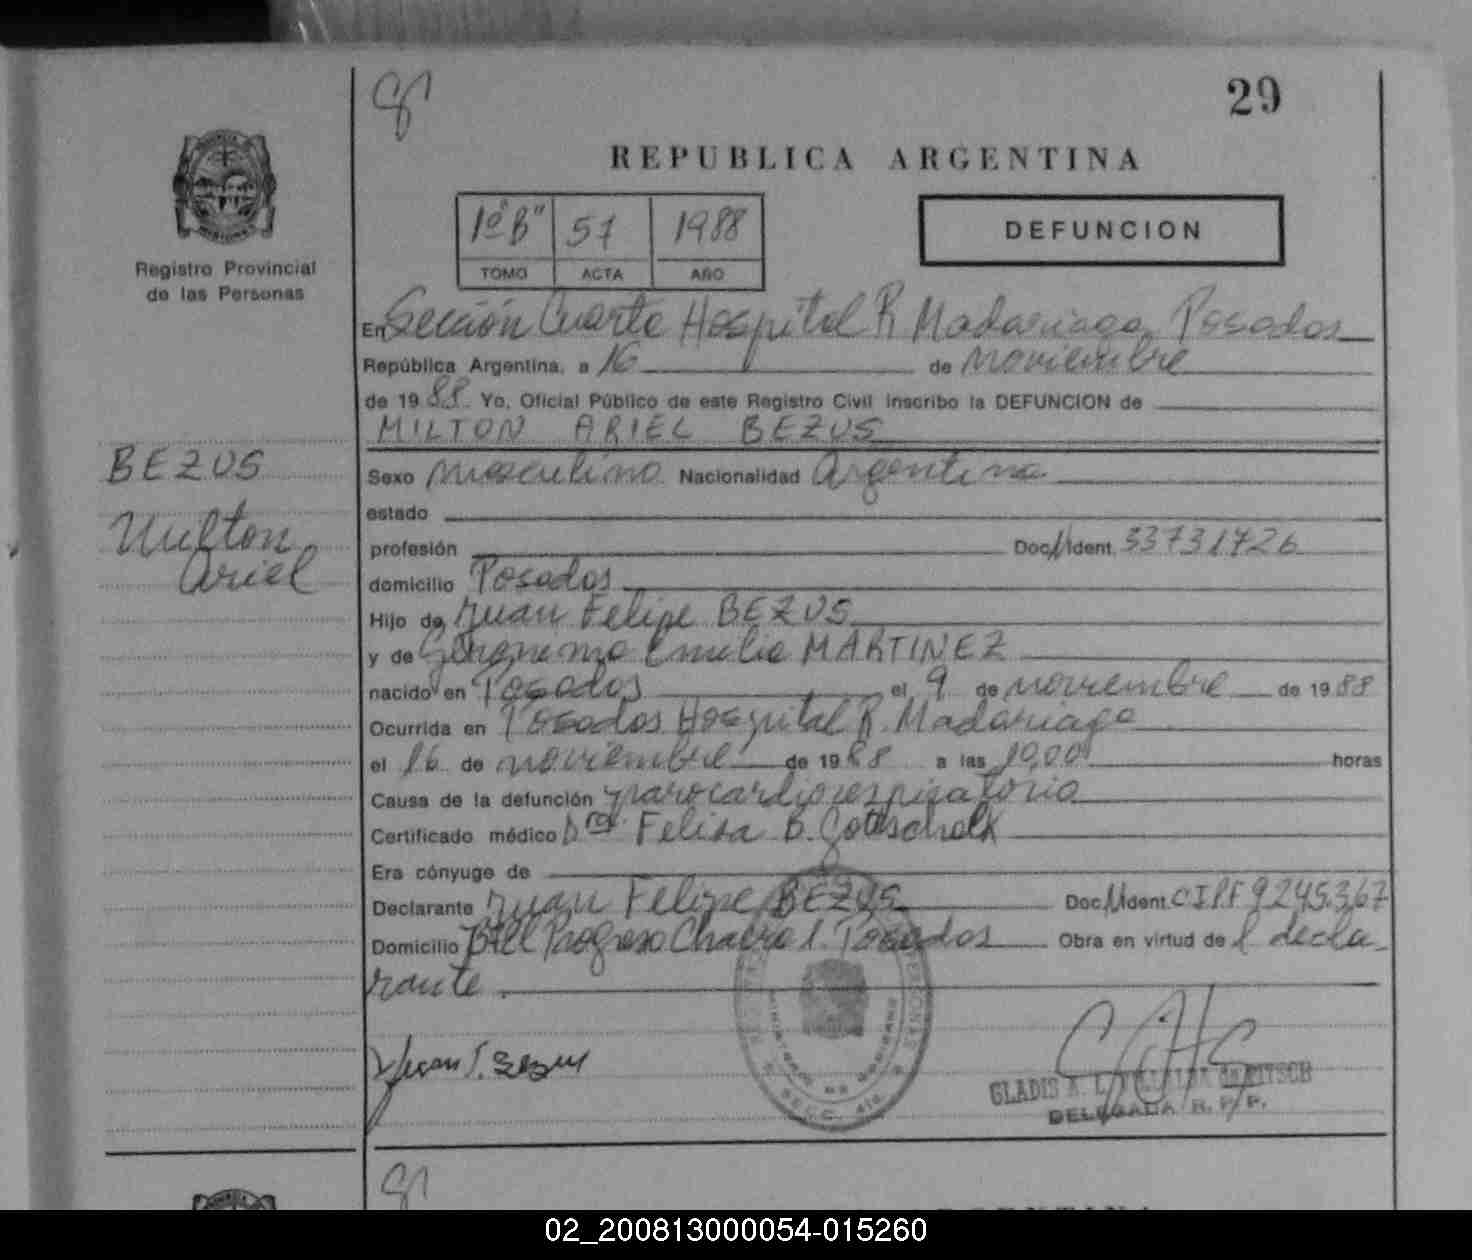 29
REPUBLICA ARGENTINA
1º "B" 57 1988
TOMO ACTA AÑO
DEFUNCION
Registro Provincial
de las Personas
En Sección Cuarta Hospital R. Madariaga Posadas
República Argentina, a 16 de noviembre
de 1988 Yo, Oficial Público de este Registro Civil inscribo la DEFUNCION de
MILTON ARIEL BEZUS
BEZUS
Milton
Ariel
Sexo masculino Nacionalidad Argentina
estado
profesión Doc. Ident. 33731726
domicilio Posadas
Hijo de Juan Felipe BEZUS
y de Emilia MARTINEZ
nacido en Posadas el 9 de noviembre de 1988
Ocurrida en Posadas Hospital R. Madariaga
el 16 de noviembre de 1988 a las horas
Causa de la defunción parocardiorespiratorio
Certificado médico Dra. Felisa B. Gottschalk
Era cónyuge de
Declarante Juan Felipe BEZUS Doc. Ident. 9245367
Domicilio Progreso Chacra 1. Posadas Obra en virtud de l decla-
rante
Juan F. Bezus
GLADIS A. L. VILLALBA de
DELEGADA R. P. P.
02_200813000054-015260